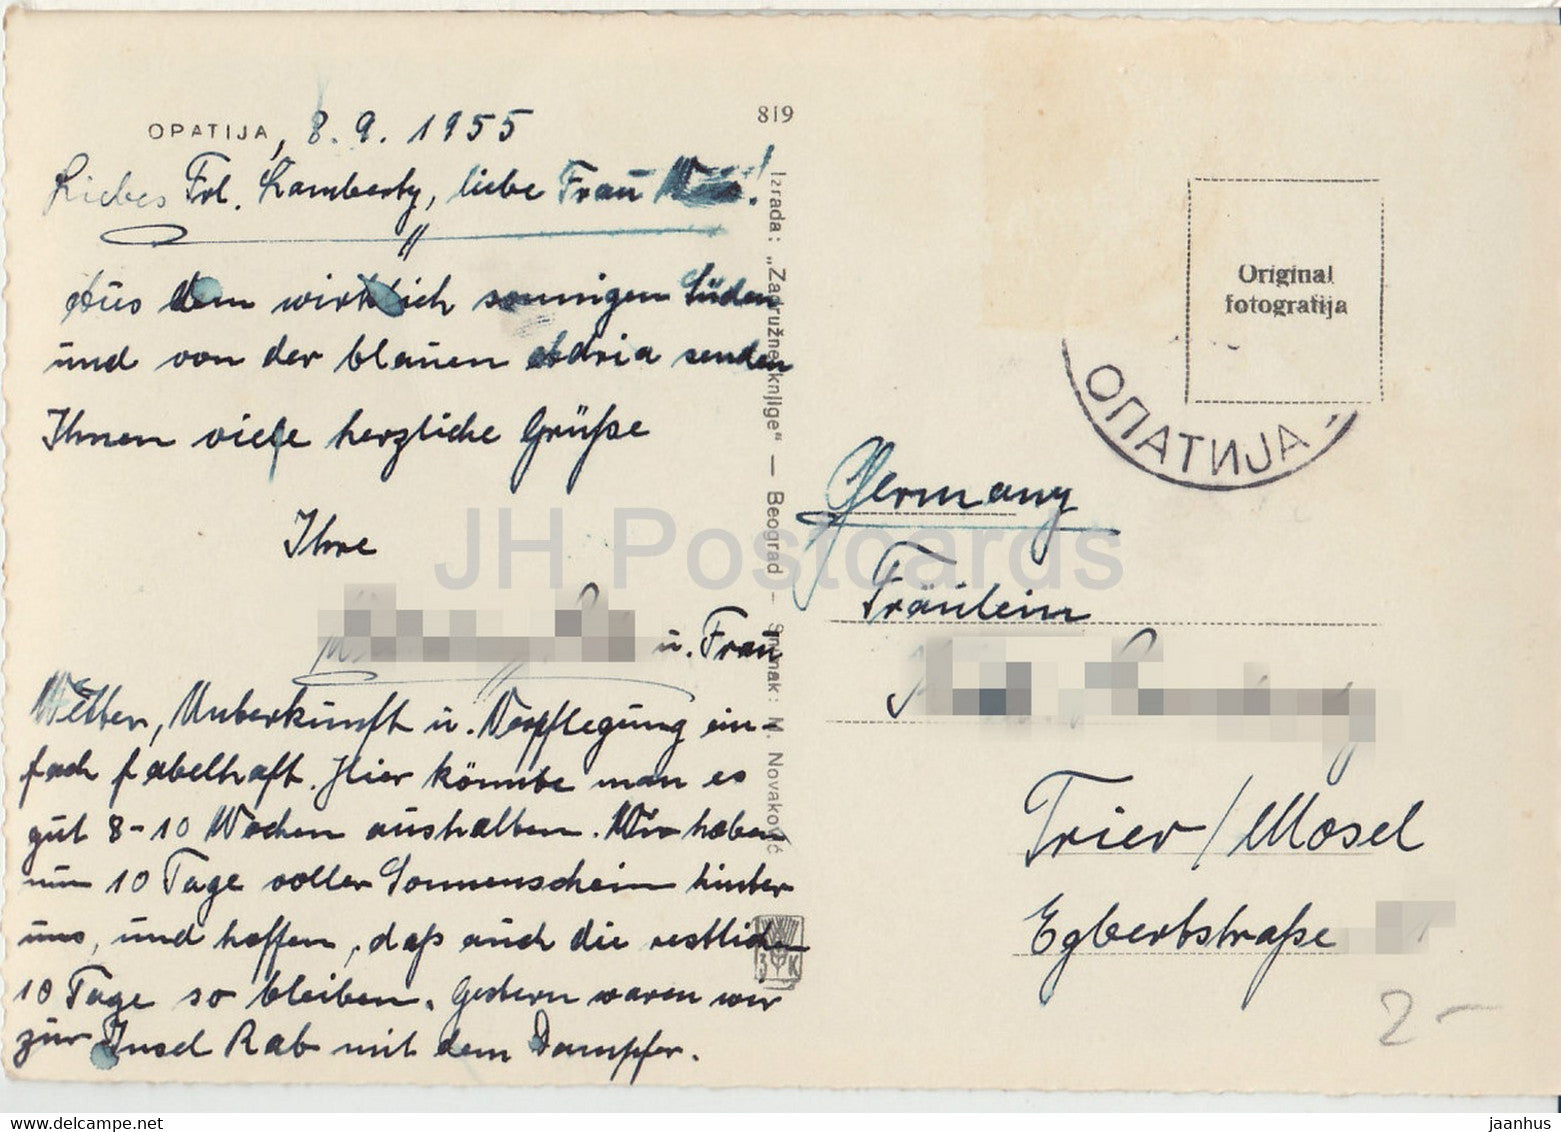 OPATIJA, 8. 9. 1955
Liebes Frl. Lamberty, liebe Frau
Aus dem wirklich sonnigen Süden
und von der blauen Adria senden
Ihnen viele herzliche Grüße
Ihre
u. Frau
Wetter, Unterkunft u. Verpflegung ein-
fach fabelhaft. Hier könnte man es
gut 8-10 Wochen aushalten. Wir haben
nun 10 Tage voller Sonnenschein hinter
uns, und hoffen, daß auch die restlichen
10 Tage so bleiben. Gestern waren wir
zur Insel Rab mit dem Dampfer.
819
Izrada: „Zadružne knjige“ — Beograd – Snimak: M. Novaković
З К
Original
fotografija
ОПАТИЈА
Germany
Fräulein
Trier/Mosel
Egbertstraße
2-
JH Postcards
www.delcampe.net
jaanhus